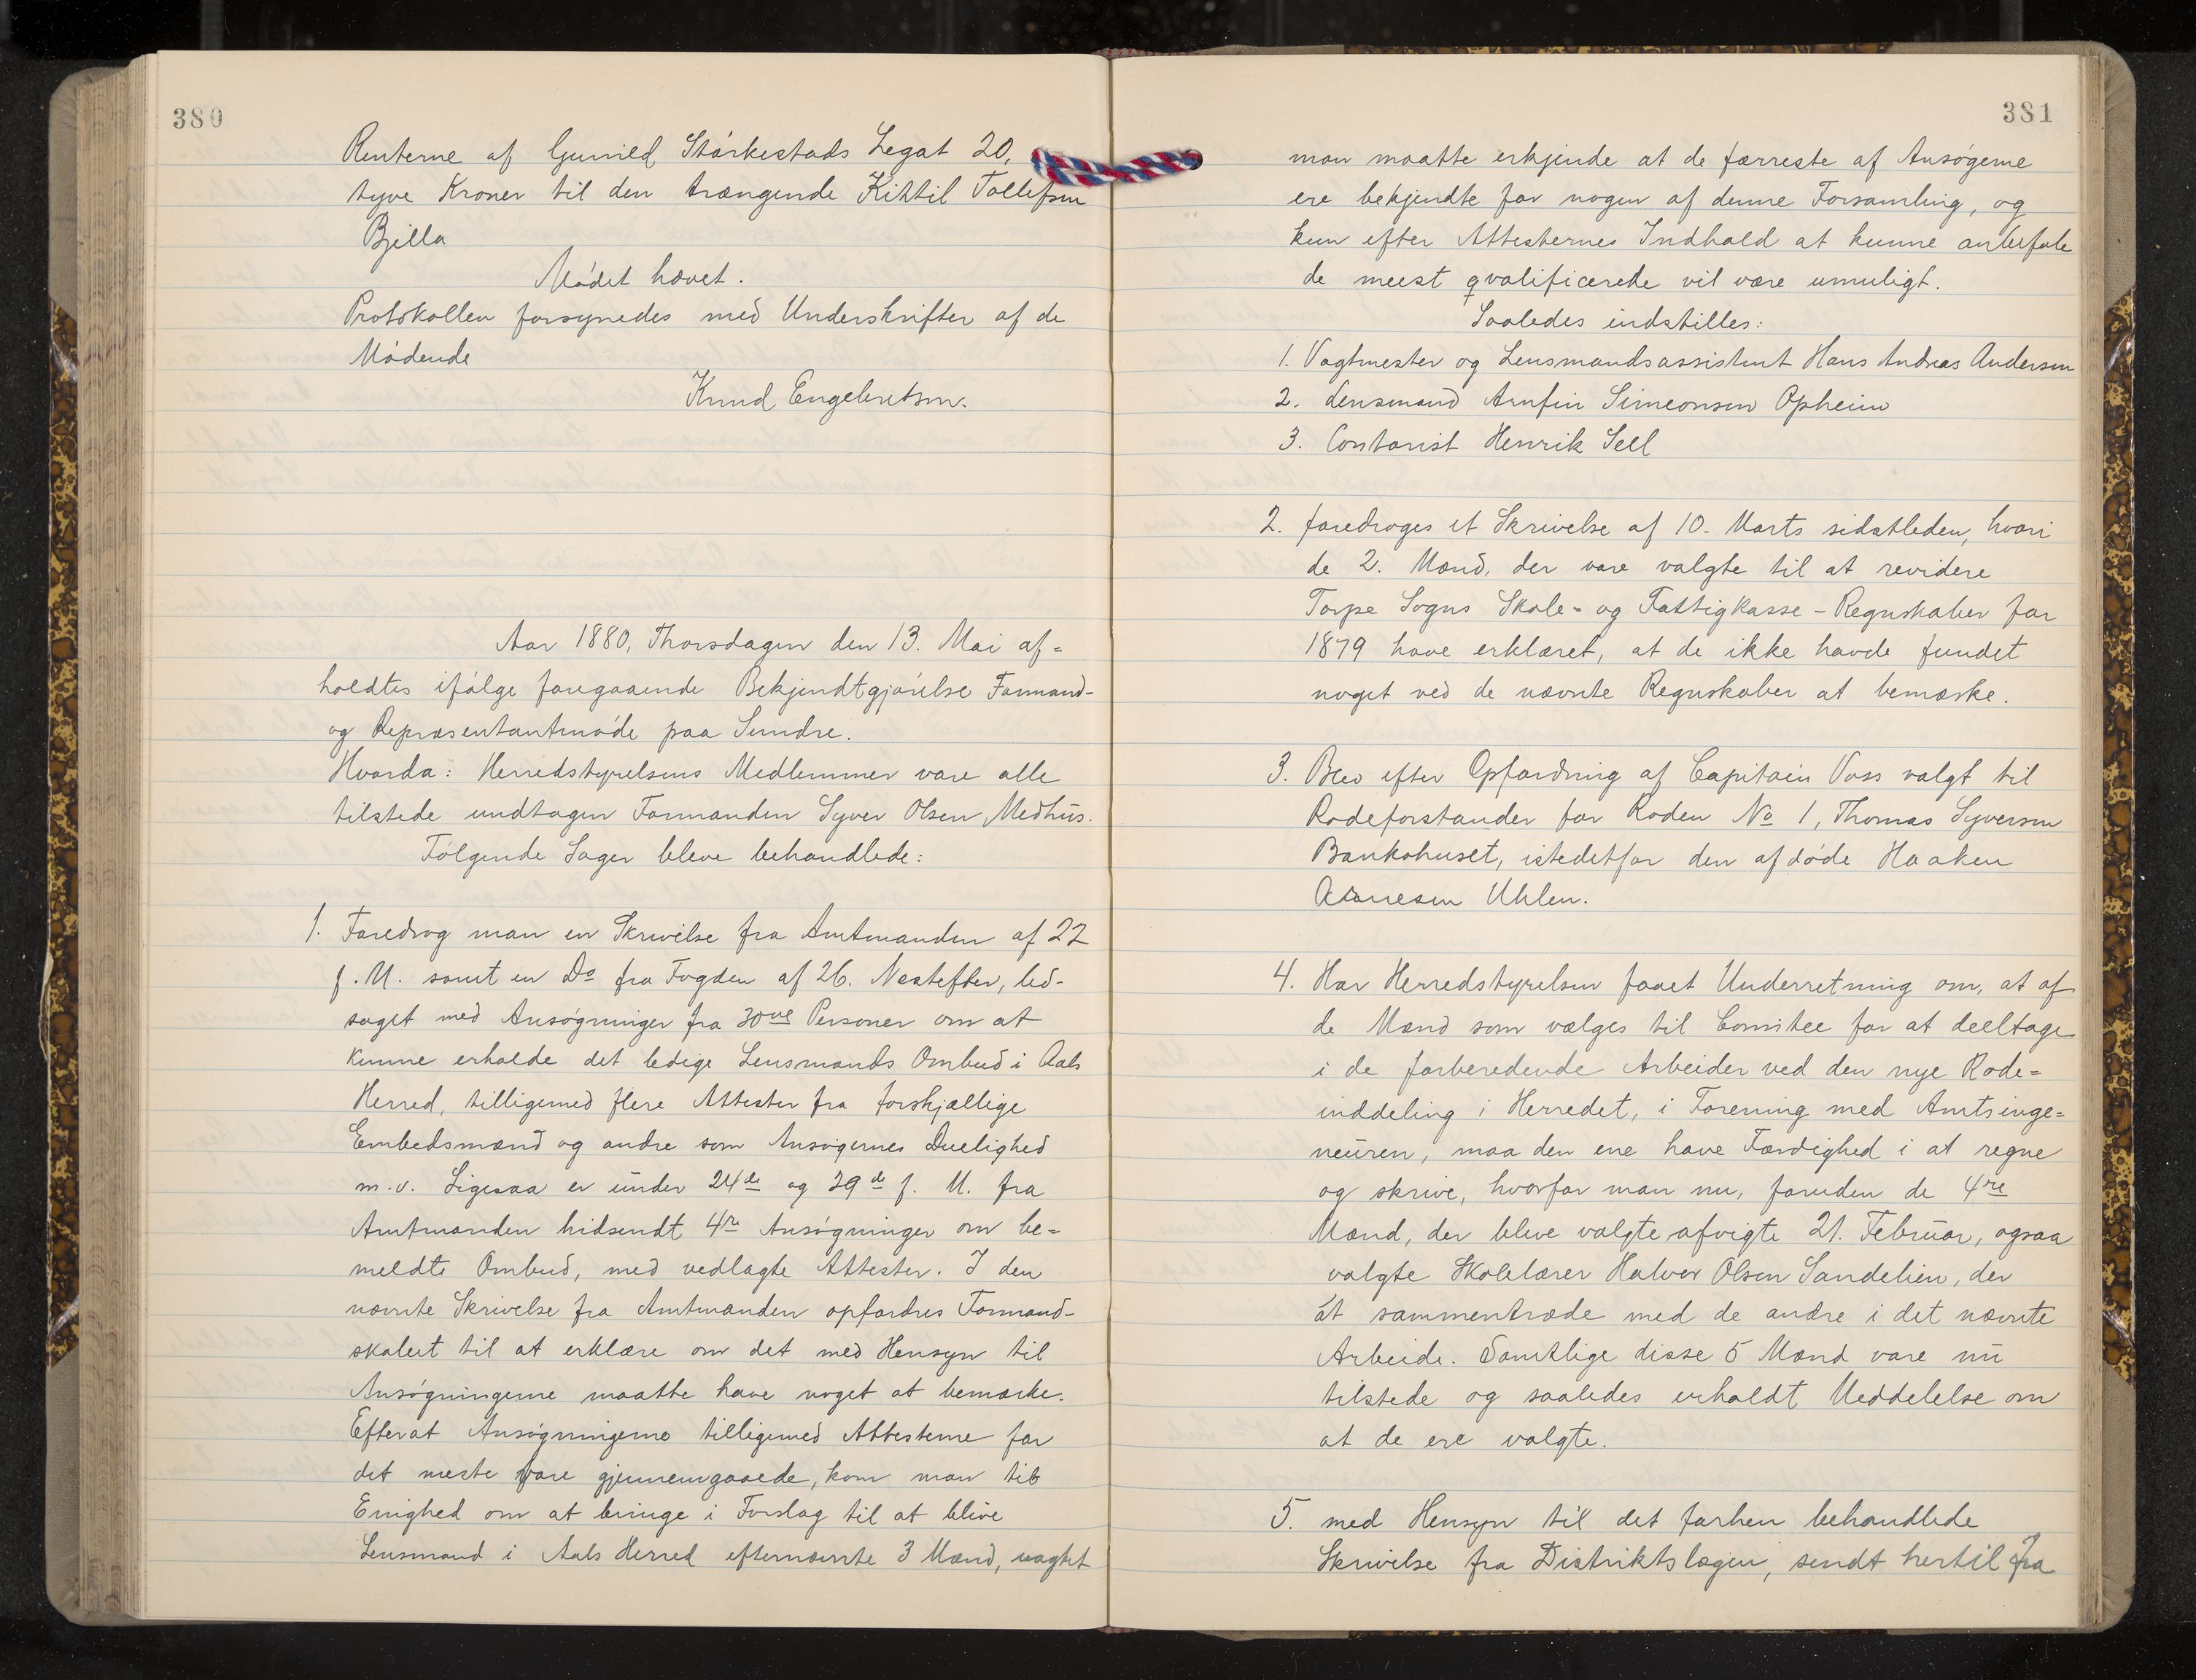 380
Renterne af Gunild Störkestads Legat 20,
tyve Kroner til den trængende Kittil Tollefsen
Bjella
Mödet hævet.
Protokollen forsynedes med Underskrifter af de
Mödende
Knud Engebretsen.
Aar 1880, Thorsdagen den 13. Mai af=
holdtes ifölge foregaaende Bekjendtgjörelse Formand-
og Repræsentantmöde paa Sundre.
Hvorda: Herredstyrelsens Medlemmer vare alle
tilstede undtagen Formanden Syver Olsen Medhus.
Fölgende Sager bleve behandlede:
1. Foredrog man en Skrivelse fra Amtmanden af 22
f. M. samt en Do fra Fogden af 26. Næstefter, led-
saget med Ansögninger fra 30ve Personer om at
kunne erholde det ledige Lensmands Ombud i Aals
Herred, tilligemed flere Attester fra forskjællige
Embedsmænd og andre som Ansögernes Duelighed
m.v. Ligesaa er under 24de og 29de f. M. fra
Amtmanden hidsendt 4re Ansögninger om be=
meldte Ombud, med vedlagte Attester. I den
nævnte Skrivelse fra Amtmanden opfordres Formand-
skabet til at erklære om det med Hensyn til
Ansögningerne maatte have noget at bemærke.
Efterat Ansögningerne tilligemed Attesterne for
det meste vare gjennemgaaede, kom man til
Enighed om at bringe i Forslag til at blive
Lensmand i Aals Herred efternævnte 3 Mænd, uagtet
381
man maatte erkjende at de færreste af Ansögerne
ere bekjendte for nogen af denne Forsamling, og
kun efter Attesternes Indhold at kunne anbefale
de meest qvalificerede vil være umuligt.
Saaledes indstilles:
1. Vagtmester og Lensmandsassistent Hans Andreas Andersen
2. Lensmand Arnfin Simeonsen Opheim
3. Contorist Henrik Sell
2. foredroges et Skrivelse af 10. Marts sidstleden, hvori
de 2. Mænd, der vare valgte til at revidere
Torpe Sogns Skole= og Fattigkasse-Regnskaber for
1879 have erklæret, at de ikke havde fundet
noget ved de nævnte Regnskaber at bemærke.
3. Blev efter Opfordring af Capitain Voss valgt til
Rodeforstander for Roden No 1, Thomas Syversen
Bankohuset, istedetfor den afdöde Haaken
Uhlen.
4. Har Herredstyrelsen faaet Underretning om, at af
de Mænd som vælges til Comitee for at deeltage
i de forberedende Arbeider ved den nye Rode=
inddeling i Herredet, i Forening med Amtsinge=
neuren, maa den ene have Færdighed i at regne
og skrive, hvorfor man nu, foruden de 4re
Mænd, der bleve valgte afvigte 21. Februar, ogsaa
valgte Skolelærer Halvor Olsen Sandelien, der
at sammentræde med de andre i det nævnte
Arbeide. Samtlige disse 5 Mænd vare nu
tilstede og saaledes erholdt Meddelelse om
at de ere valgte.
5. med Hensyn til det forhen behandlede
Skrivelse fra Distriktslægen, sendt hertil fra